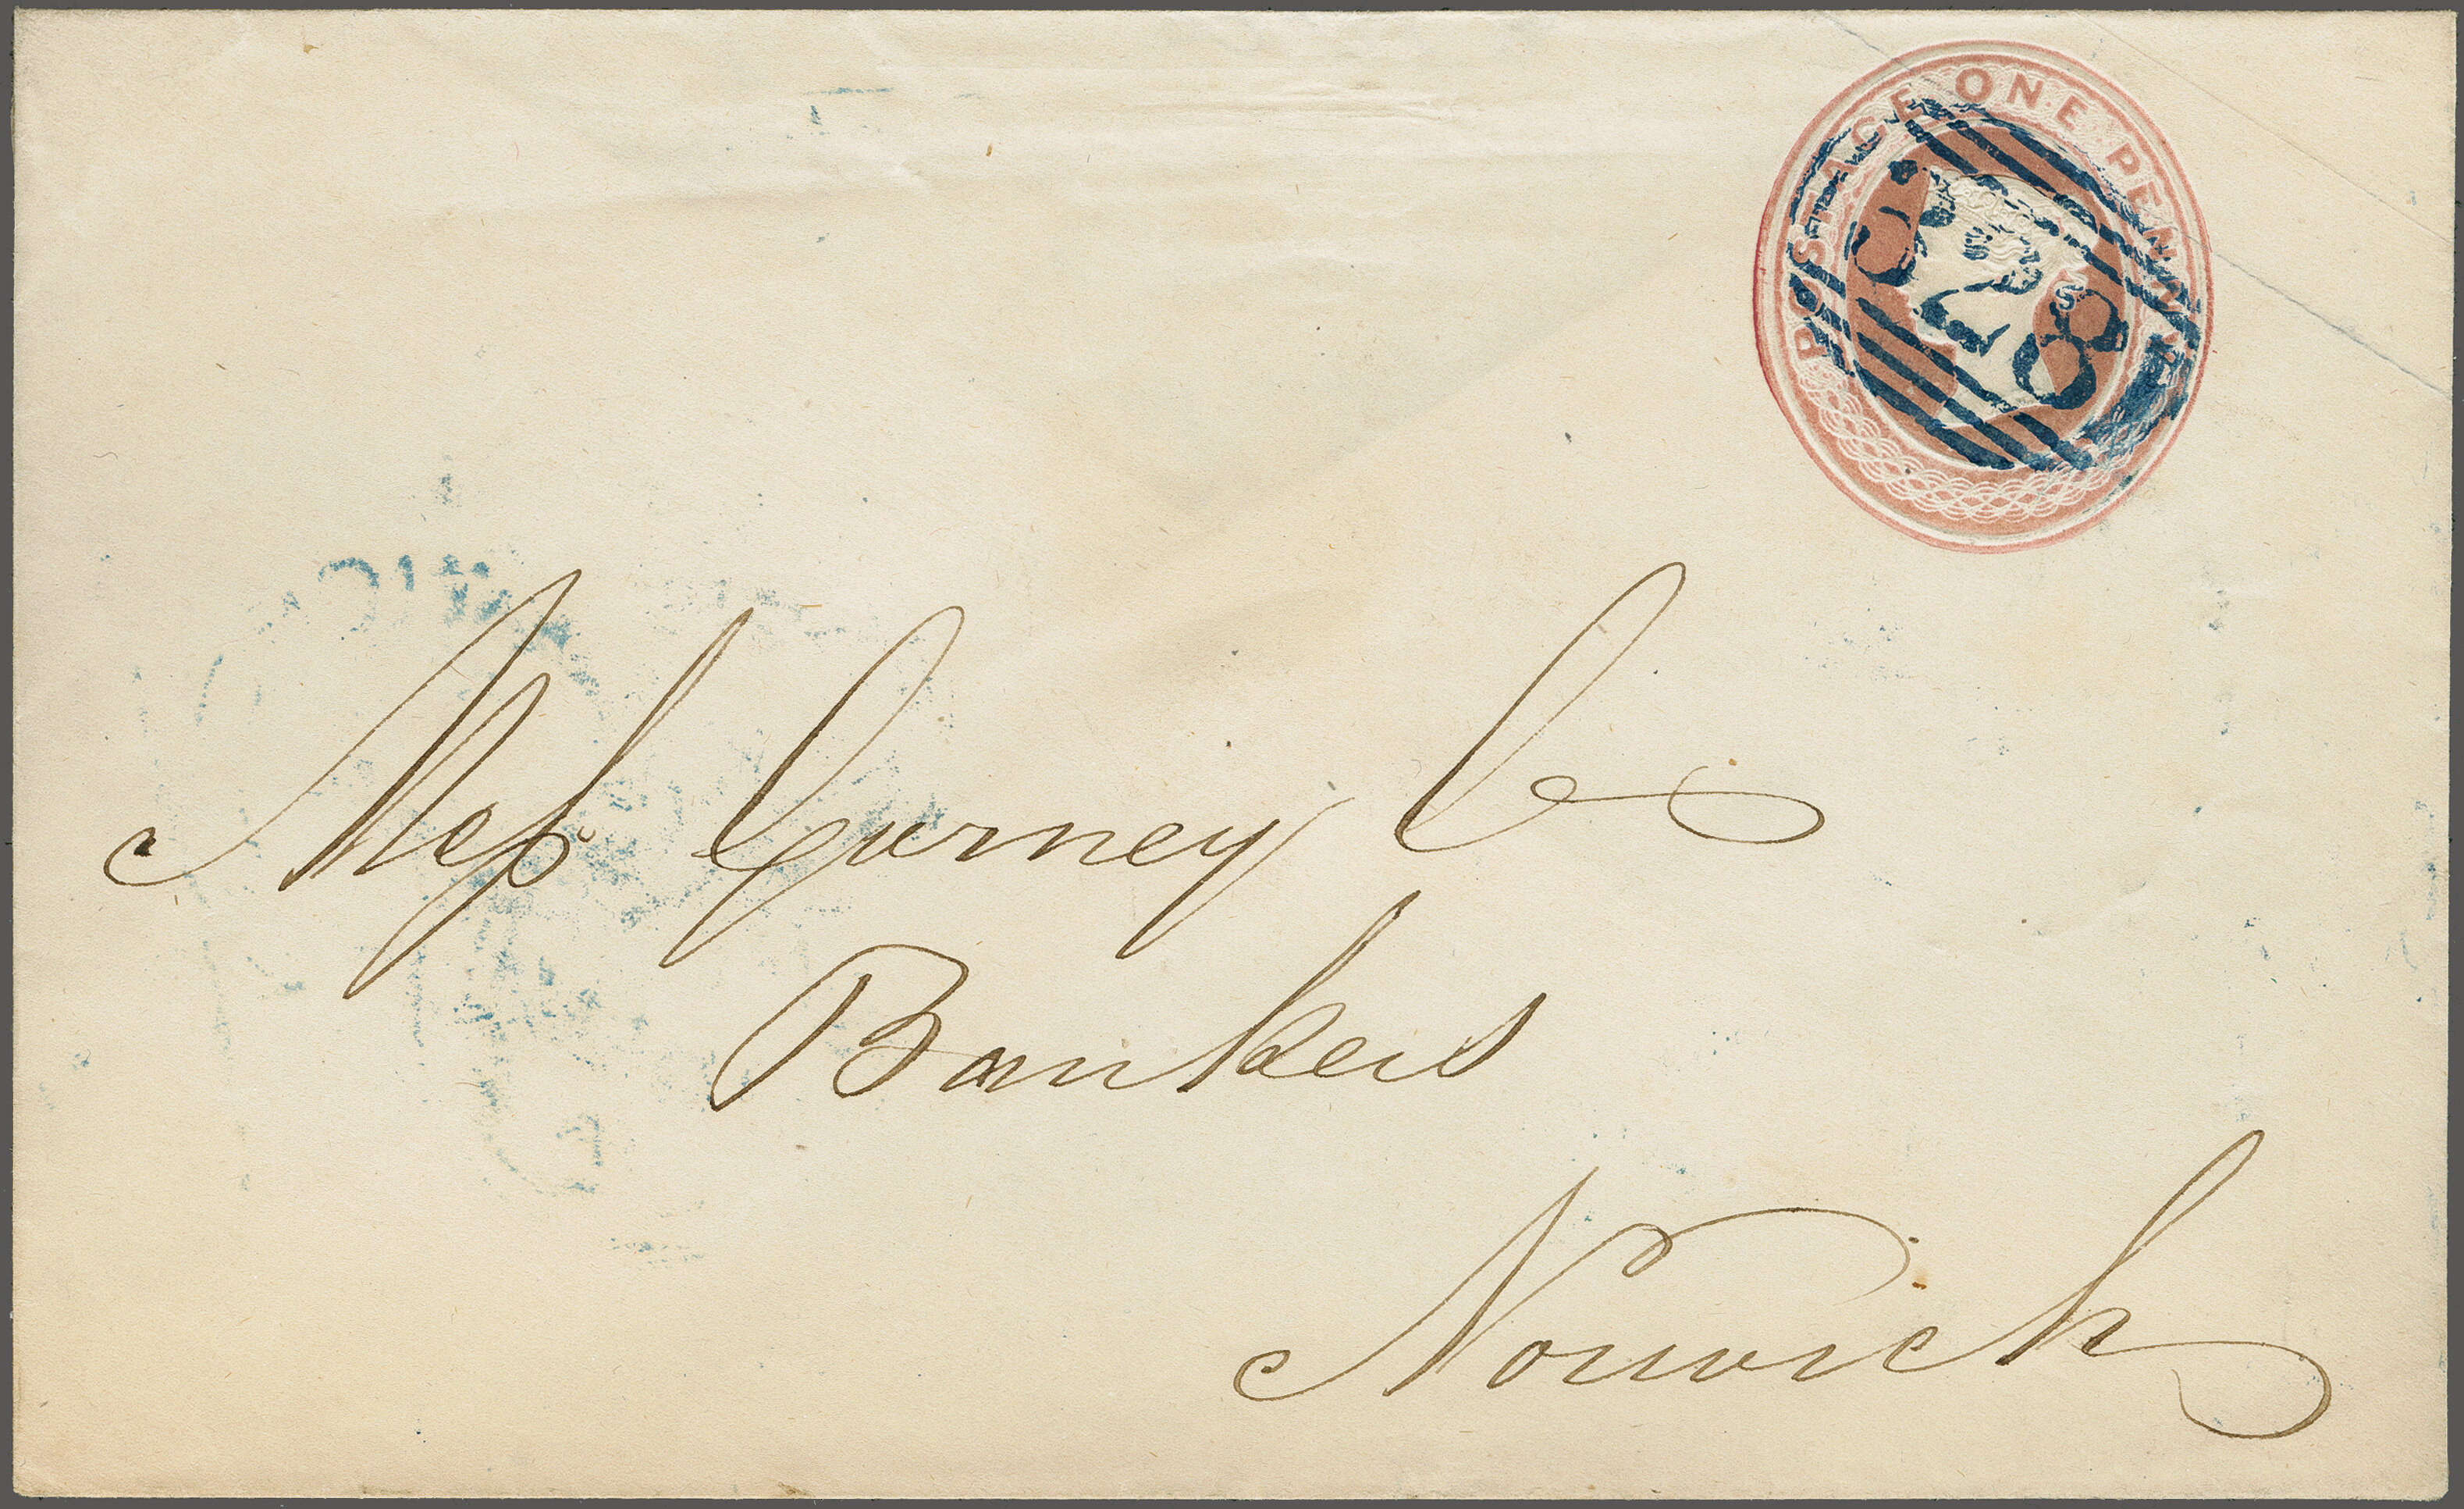 POSTAGE ONE PENNY
628
Mess Gurney Co
Bankers
Norwich